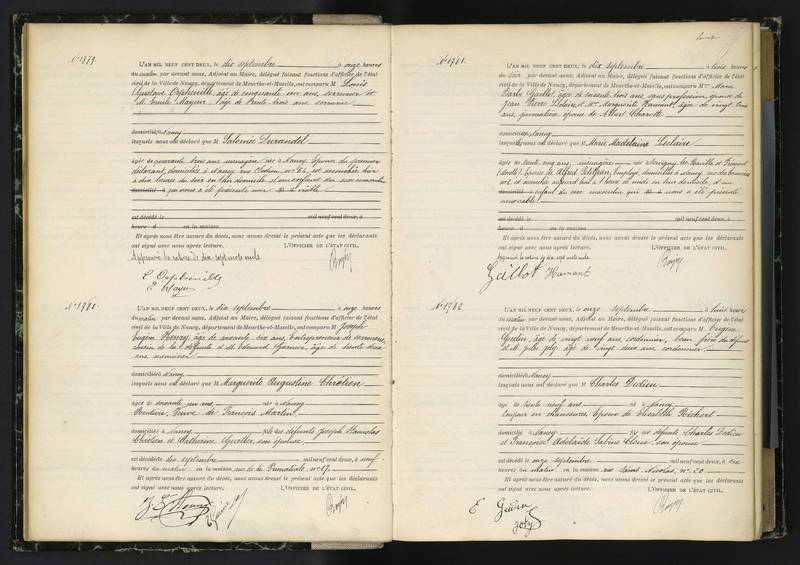 N° 1779.
L'AN MIL NEUF CENT DEUX, le dix septembre à onze heures
du matin par devant nous, Adjoint au Maire, délégué faisant fonctions d'officier de l'état
civil de la Ville de Nancy, département de Meurthe-et-Moselle, ont comparu M Louis
Gustave âgé de cinquante ans, serrurier et
M. Emile Mayeur, âgé de trente trois ans serrurier
domiciliés à Nancy
lesquels nous ont déclaré que M Salomé Durandel
âgée de quarante trois ans ménagère née à Nancy épouse du premier
déclarant, domiciliée à Nancy est accouchée hier
à dix heures du soir en leur domicile d'un enfant du sexe masculin
domicilié à qui nous a été présenté viable
est décédé le mil neuf cent deux, à
heure d en la maison
Et après nous être assuré du décès, nous avons dressé le présent acte que les déclarants
ont signé avec nous après lecture. L'OFFICIER DE L'ÉTAT CIVIL.
Approuvé la rature de dix sept mots nuls.
E. Mayeur
N° 1780.
L'AN MIL NEUF CENT DEUX, le dix septembre à onze heures
du matin par devant nous, Adjoint au Maire, délégué faisant fonctions d'officier de l'état
civil de la Ville de Nancy, département de Meurthe-et-Moselle, ont comparu M Joseph
Eugène Henry, âgé de soixante six ans, entrepreneur de serrurerie
cousin de la défunte et M. Edmond Garnier âgé de trente deux
ans menuisier
domiciliés à Nancy
lesquels nous ont déclaré que M Marguerite Augustine Chrétien
âgée de soixante un ans née à Nancy
Rentière, Veuve de François Martin
domiciliée à Nancy fille des défunts Joseph Stanislas
Chrétien et Catherine son épouse
est décédée dix septembre mil neuf cent deux, à neuf
heures du matin en la maison rue de la Primatiale n° 17.
Et après nous être assuré du décès, nous avons dressé le présent acte que les déclarants
ont signé avec nous après lecture. L'OFFICIER DE L'ÉTAT CIVIL.
N° 1781.
L'AN MIL NEUF CENT DEUX, le dix septembre à trois heures
du soir par devant nous, Adjoint au Maire, délégué faisant fonctions d'officier de l'état
civil de la Ville de Nancy, département de Meurthe-et-Moselle, ont comparu Mme Marie
Gaillot, âgée de soixante trois ans, sans profession épouse de
Jean Pierre Leclaire et Mme Marguerite Hamant, âgée de vingt trois
ans, journalière épouse de Albert Charette
domiciliés à Nancy
lesquels nous ont déclaré que M Marie Madelaine Leclaire
âgée de trente cinq ans, ménagère née à
épouse de Alfred employé, domiciliée à Nancy rue des
est accouchée aujourd'hui à heure de midi en leur domicile, d'un
domicilié à enfant du sexe masculin qui nous a été présenté
non viable
est décédé le mil neuf cent deux, à
heure d en la maison
Et après nous être assuré du décès, nous avons dressé le présent acte que les déclarants
ont signé avec nous après lecture. L'OFFICIER DE L'ÉTAT CIVIL.
Approuvé la rature de dix sept mots nuls
Gaillot Hamant
N° 1782
L'AN MIL NEUF CENT DEUX, le onze septembre à huit heures
du matin par devant nous, Adjoint au Maire, délégué faisant fonctions d'officier de l'état
civil de la Ville de Nancy, département de Meurthe-et-Moselle, ont comparu M Eugène
Guérin, âgé de vingt neuf ans, cordonnier, beau frère du défunt
et M. Jules Joly, âgé de vingt deux ans, cordonnier
domiciliés à Nancy
lesquels nous ont déclaré que M Charles Dedieu
âgé de trente neuf ans né à Nancy
coupeur en chaussures, époux de Elisabeth Richert
domicilié à Nancy fils des défunts Charles Dedieu
et Françoise Adélaïde Sabine son épouse
est décédé le onze septembre mil neuf cent deux, à six
heures du matin en la maison rue Saint Nicolas, n° 20.
Et après nous être assuré du décès, nous avons dressé le présent acte que les déclarants
ont signé avec nous après lecture. L'OFFICIER DE L'ÉTAT CIVIL.
E Guérin
Joly